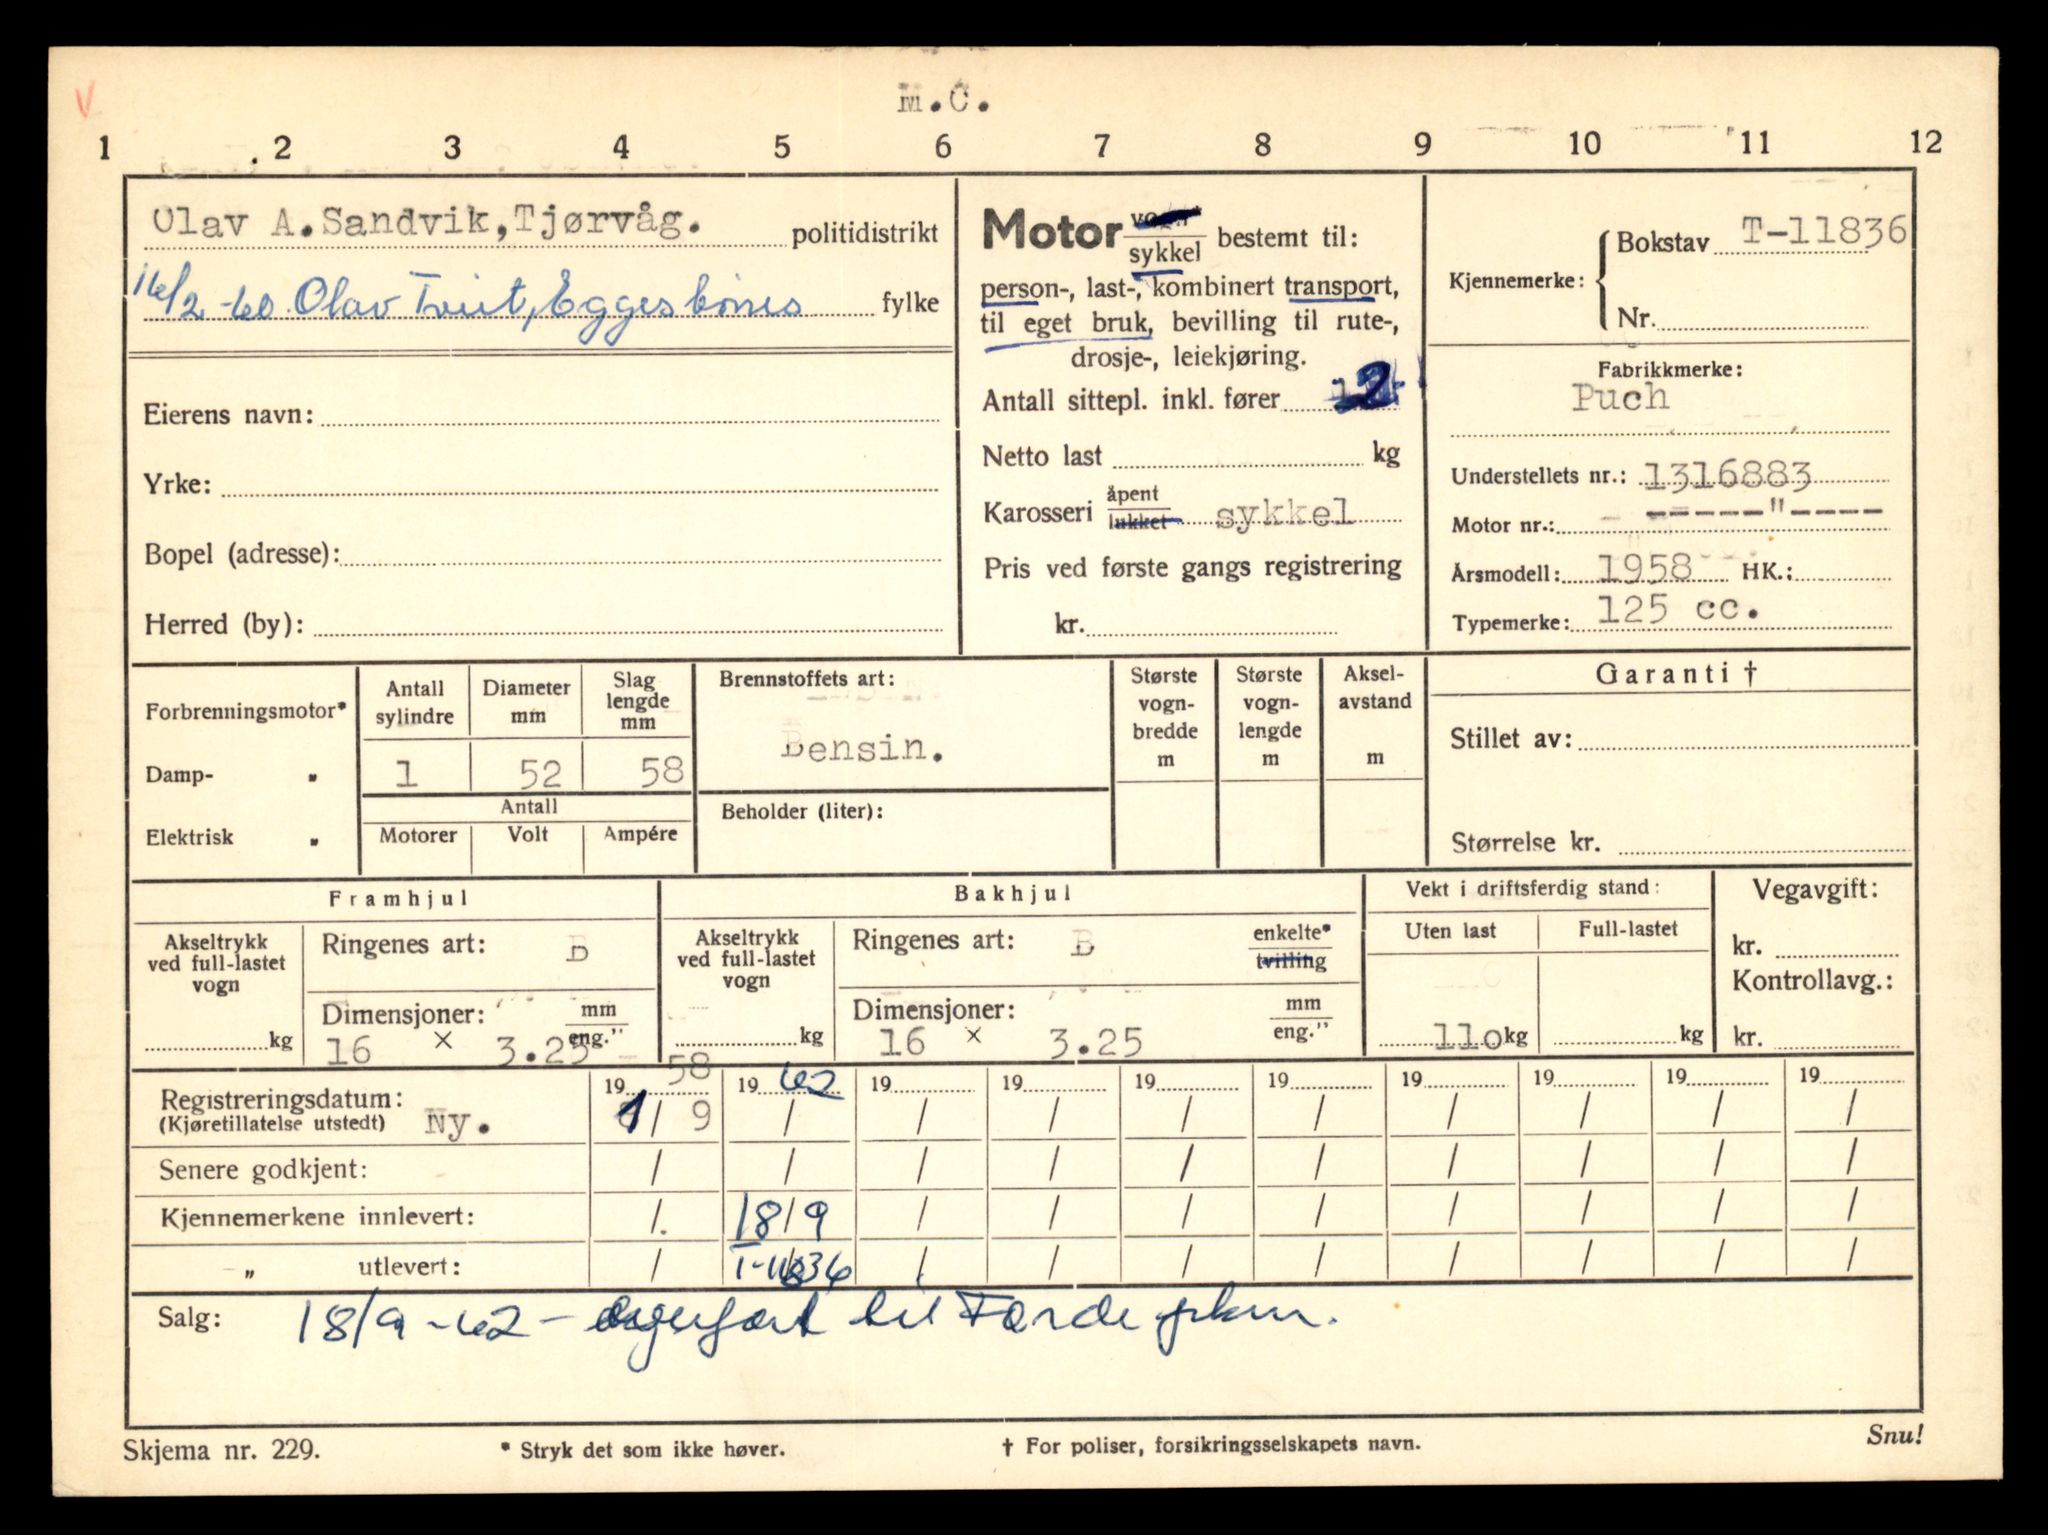 M.C.
1 2 3 4 5 6 7 8 9 10 11 12
Olav A. Sandvik, Tjørvåg. politidistrikt
16/2-60 Olav Tveit, Eggesbønes fylke
Eierens navn:
Yrke:
Bopel (adresse):
Herred (by):
Motor sykkel bestemt til:
person-, last-, kombinert transport,
til eget bruk, bevilling til rute-,
drosje-, leiekjøring.
Antall sittepl. inkl. fører 2
Netto last kg
Karosseri åpent lukket sykkel
Pris ved første gangs registrering
kr.
Kjennemerke: Bokstav T-11836
Nr.
Fabrikkmerke:
Puch
Understellets nr.: 1316883
Motor nr.: -----"----
Årsmodell: 1958 HK.:
Typemerke: 125 cc.
Forbrenningsmotor*
Damp- "
Elektrisk "
Antall sylindre
Diameter mm
Slag lengde mm
1 52 58
Antall
Motorer Volt Ampére
Brennstoffets art:
Bensin.
Beholder (liter):
Største vogn- bredde m
Største vogn- lengde m
Aksel- avstand m
Garanti †
Stillet av:
Størrelse kr.
Framhjul
Akseltrykk ved full-lastet vogn
kg
Ringenes art: B
Dimensjoner: mm eng."
16 × 3.25
Bakhjul
Akseltrykk ved full-lastet vogn
kg
Ringenes art: B enkelte* tvilling
Dimensjoner: mm eng."
16 × 3.25
Vekt i driftsferdig stand:
Uten last Full-lastet
110 kg kg
Vegavgift:
kr.
Kontrollavg.:
kr.
19 58 19 62 19 19 19 19 19 19 19 19
Registreringsdatum:
(Kjøretillatelse utstedt) Ny. 1/9 / / / / / / / / /
Senere godkjent: / / / / / / / / / /
Kjennemerkene innlevert: / 18/9 / / / / / / / /
" utlevert: / T-11836 / / / / / / / /
Salg: 18/9-62 - til Førde pkm.
Skjema nr. 229.
* Stryk det som ikke høver.
† For poliser, forsikringsselskapets navn.
Snu!